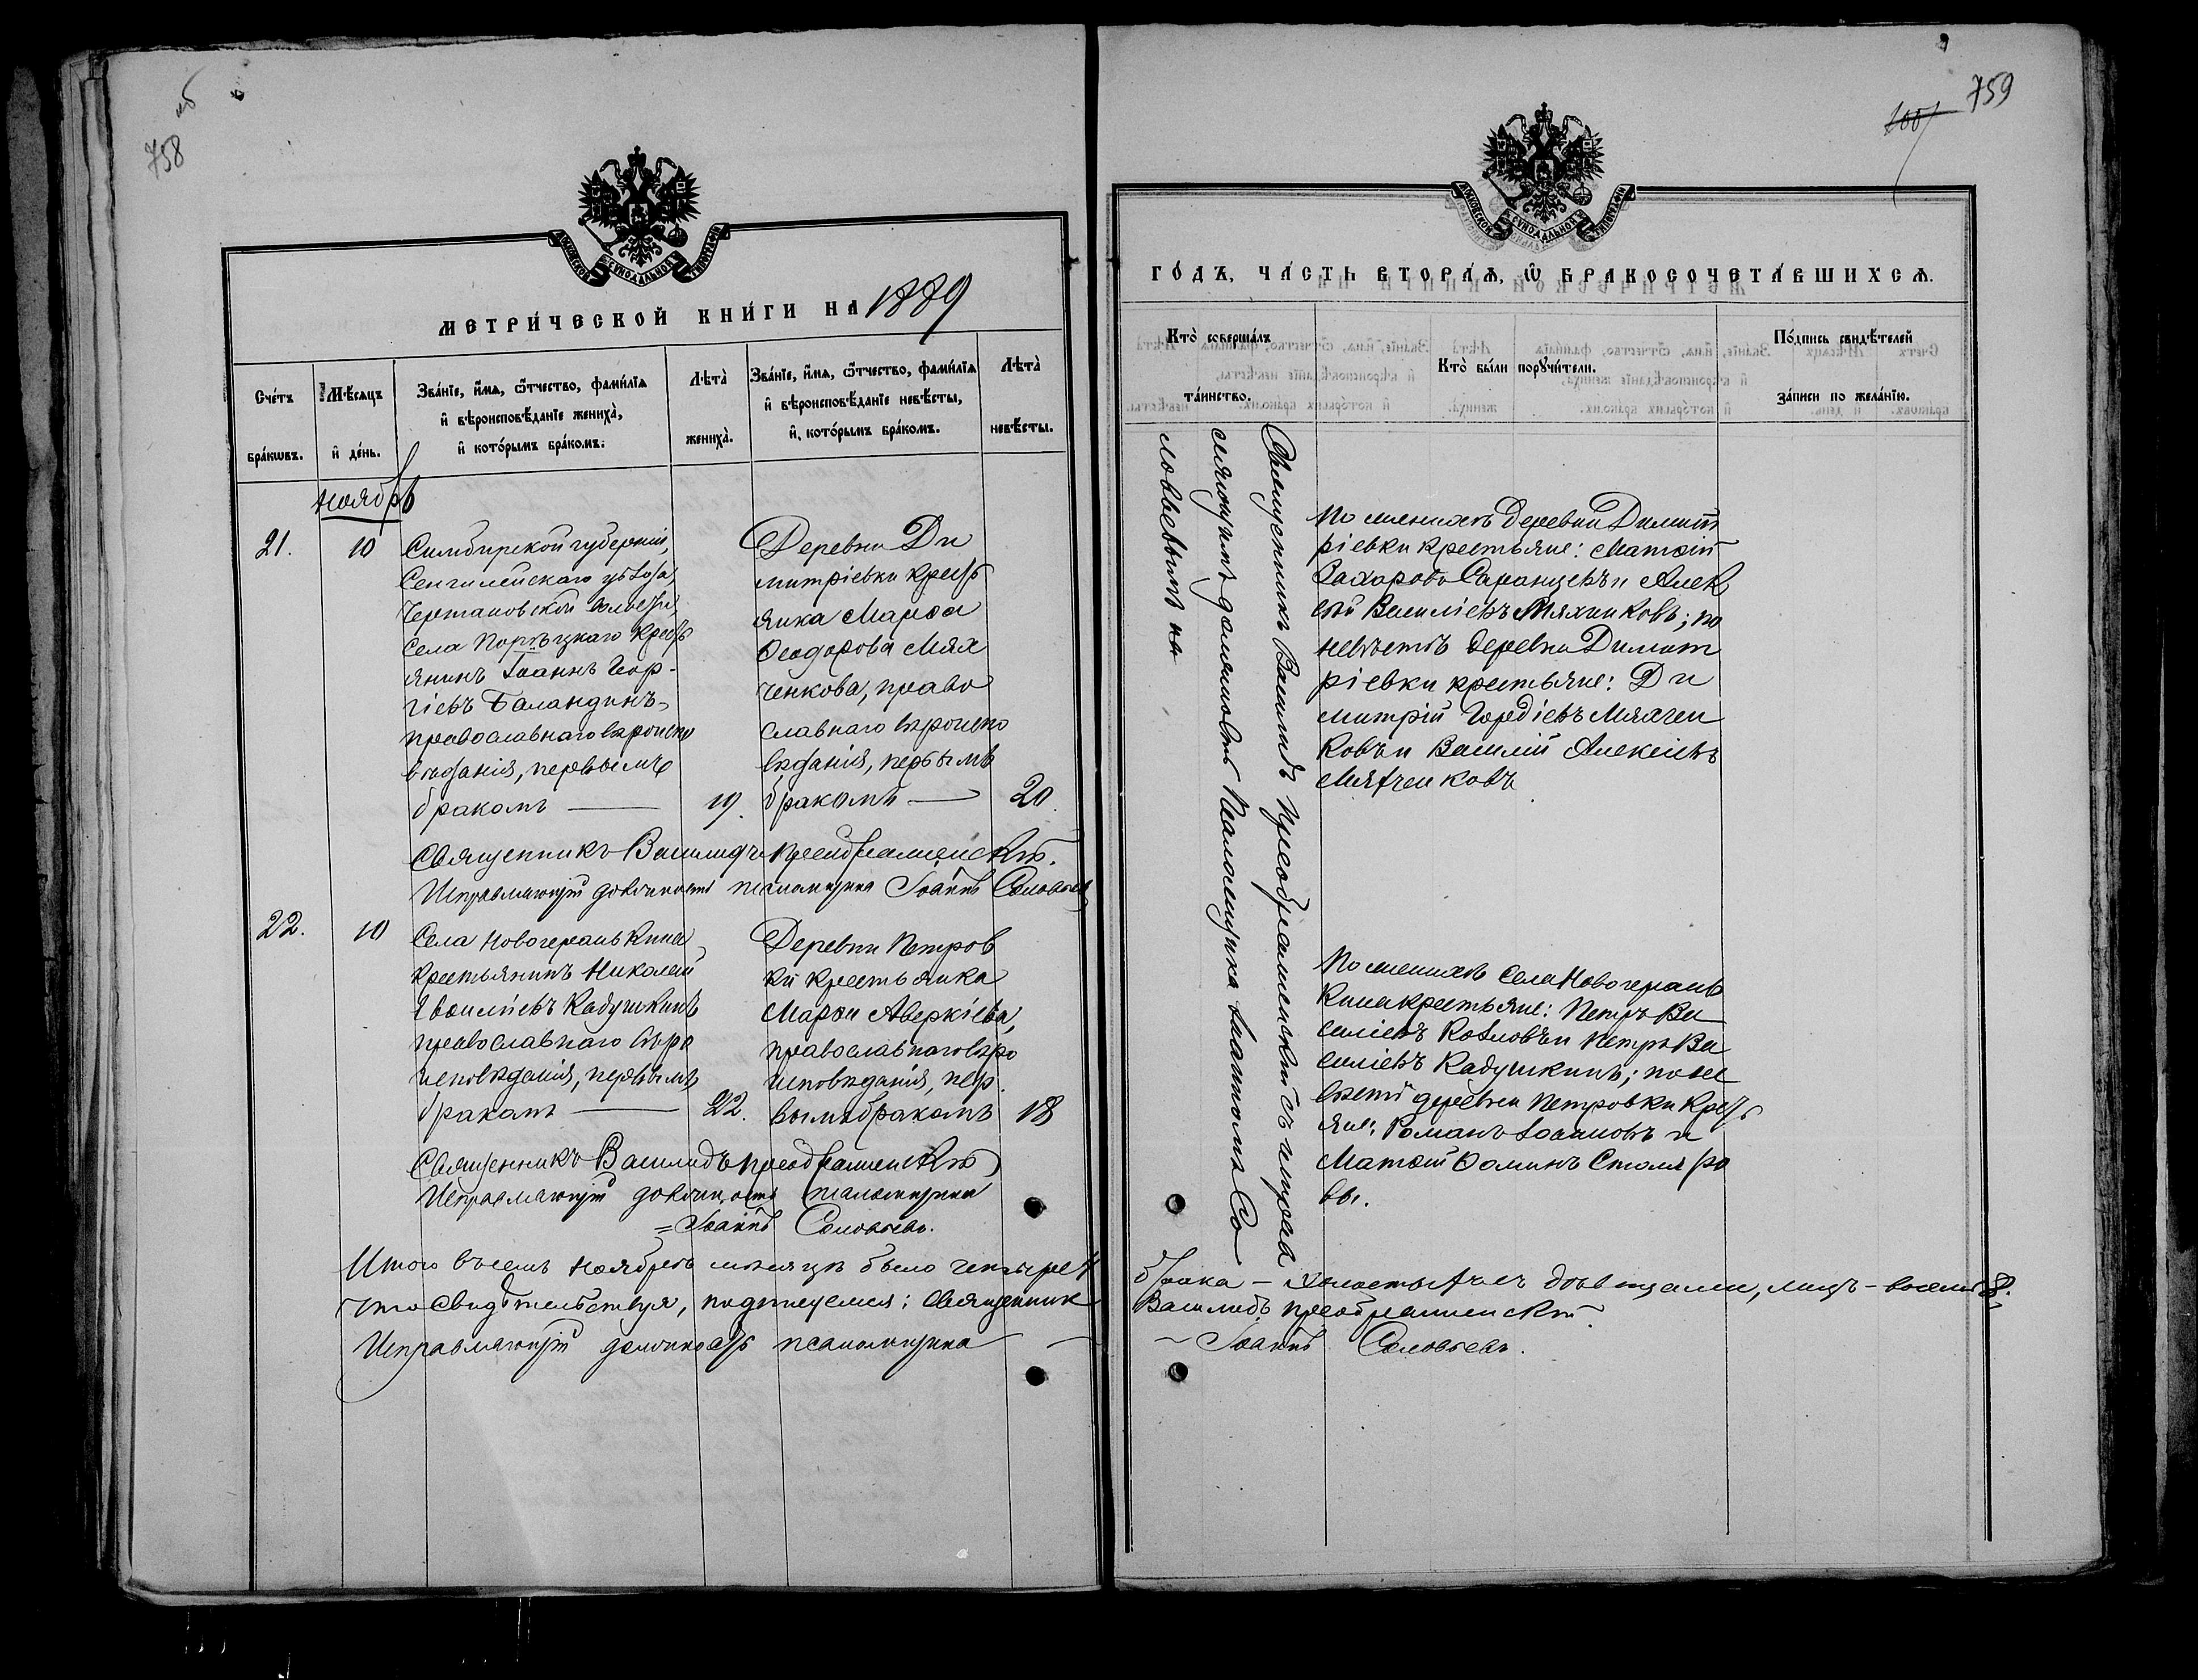 758
МЕТРИЧЕСКОЙ КНИГИ НА 1889
Счетъ браковъ.
Мѣсяцъ и день.
Званіе, имя, отчество, фамилія
и вѣроисповѣданіе жениха,
и которымъ бракомъ.
Лѣта жениха.
Званіе, имя, отчество, фамилія
и вѣроисповѣданіе невѣсты,
и, которымъ бракомъ.
Лѣта невѣсты.
Ноябрь
21.
10
Симбирской губерніи,
Сенгилейскаго уѣзда,
села Порѣцкаго крест
янинъ Іоаннъ Геор-
гіевъ Баландинъ,
православнаго вѣроиспо
вѣданія, первымъ
бракомъ — 19.
Деревни Ди
митріевки крест
янка Марѳа
Ѳеодорова Мях
ченкова, право
славнаго вѣроиспо
вѣданія, первымъ
бракомъ — 20.
Священникъ Василидъ Преображенскій.
Исправляющій должность псаломщика Іоаннъ Соловьевъ
22.
10
крестьянинъ Николай
Василіевъ Кадушкинъ
православнаго вѣро
исповѣданія, первымъ
бракомъ — 22.
Деревни Петров
ки крестьянка
Марѳа Аверкіева,
православнаго вѣро
исповѣданія, пер
вымъ бракомъ 18
Священникъ Василидъ Преображенскій
Исправляющій должность псаломщика
= Іоаннъ Соловьевъ.
Итого въ семъ ноябрѣ мѣсяцѣ было четыре 4
что свидѣтельствуя, подписуемся: Священникъ
Исправляющій должность псаломщика —
759
ГОДЪ, ЧАСТЬ ВТОРАЯ, Ѡ БРАКОСОЧЕТАВШИХСЯ.
Кто совершалъ
таинство.
Кто были поручители.
Подпись свидѣтелей
записи по желанію.
Священникъ Василидъ Преображенскій съ исправ
ляющимъ должность Псаломщика Іоанномъ Со
ловьевымъ
По женихѣ деревни Димит
ріевки крестьяне: Матѳій
Захаровъ Саранцевъ и Алек
сѣй Василіевъ Мяхчиковъ; по
невѣстѣ деревни Димит
ріевки крестьяне: Ди
митрій Гордіевъ Мяхчен
ковъ и Василій Алексіевъ
Мяхченковъ
кина крестьяне: Петръ Ва
силіевъ Козловъ и Петръ Ва
силіевъ Кадушкинъ; по не
вѣстѣ деревни Петровки крест
яне: Романъ Іоанновъ и
Матѳій Ѳоминъ Столяро
вы.
брака — холостыхъ съ дѣвицами, лицъ — восемь 8.
Василидъ Преображенскій.
— Іоаннъ Соловьевъ.